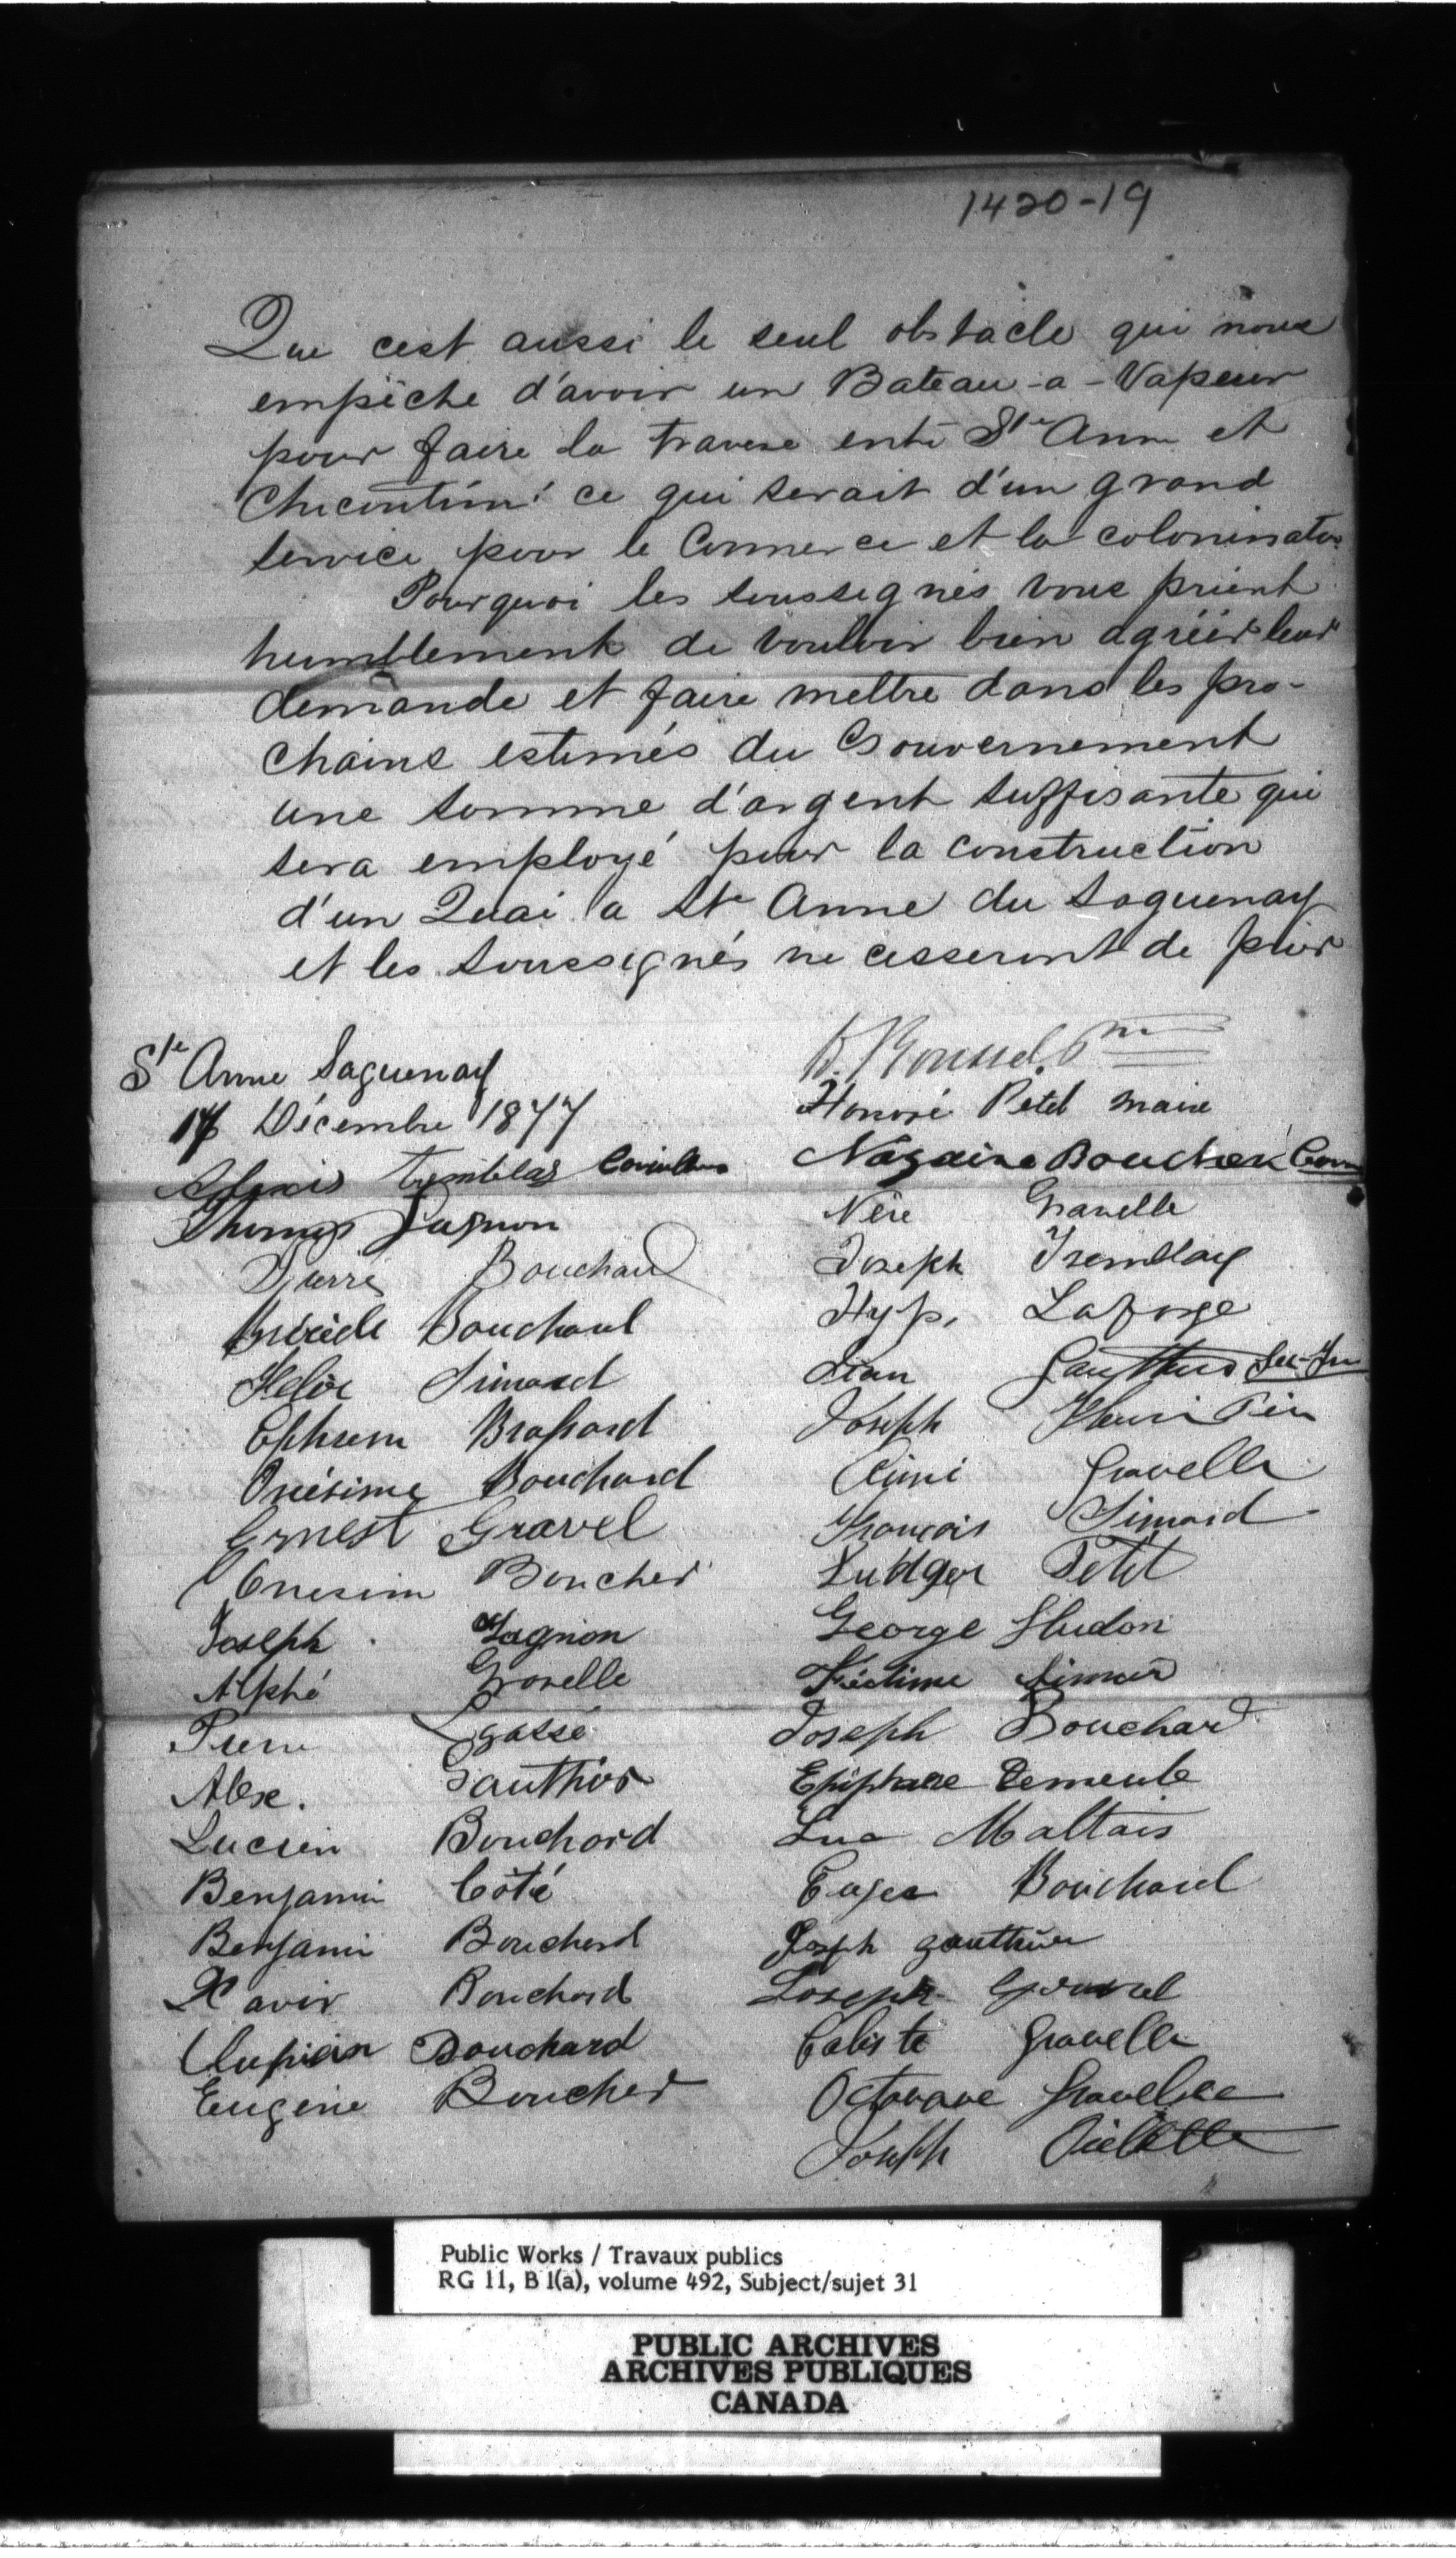 1420-19
Que cest aussi le seul obstacle qui nous
empêche d'avoir un Bateau-a-Vapeur
pour faire la traverse entre Ste Anne et
Chicoutimi ce qui serait d'un grand
service pour le Commerce et la colonisation
Pourquoi les soussignés vous prient
humblement de vouloir bien agréer leur
demande et faire mettre dans les pro-
chains estimés du Gouvernement
une somme d'argent suffisante qui
sera employé pour la construction
d'un Quai a Ste Anne du Saguenay
et les soussignés ne cesseront de prier
Ste Anne Saguenay
Décembre 1877
Honoré Petit maire
Alexis Tremblay
Nazaire Boucher
Thomas Gagnon
Néré Gravelle
Pierre Bouchard
Joseph Tremblay
Bouchard
Hyp. Laforge
Simard
Jean Gauthier Sec-Tr
Ephrem Brassard
Joseph
Onésime Bouchard
Aimé Gravelle
Ernest Gravel
François Simard
Onesim Boucher
Ludger Petit
Joseph Gagnon
George Hudon
Alphé Gravelle
Simard
Pierre Lgassé
Joseph Bouchard
Alex. Gauthier
Epiphane Demeule
Lucien Bouchard
Luc Maltais
Benjamin Côté
Bouchard
Benjamin Bouchard
Joseph gauthier
Xavir Bouchard
Joseph Gravel
Ulupian Bouchard
Caliste Gravelle
Eugène Boucher
Octavave Gravelle
Joseph Ouellette
Public Works / Travaux publics
RG 11, B 1(a), volume 492, Subject/sujet 31
PUBLIC ARCHIVES
ARCHIVES PUBLIQUES
CANADA